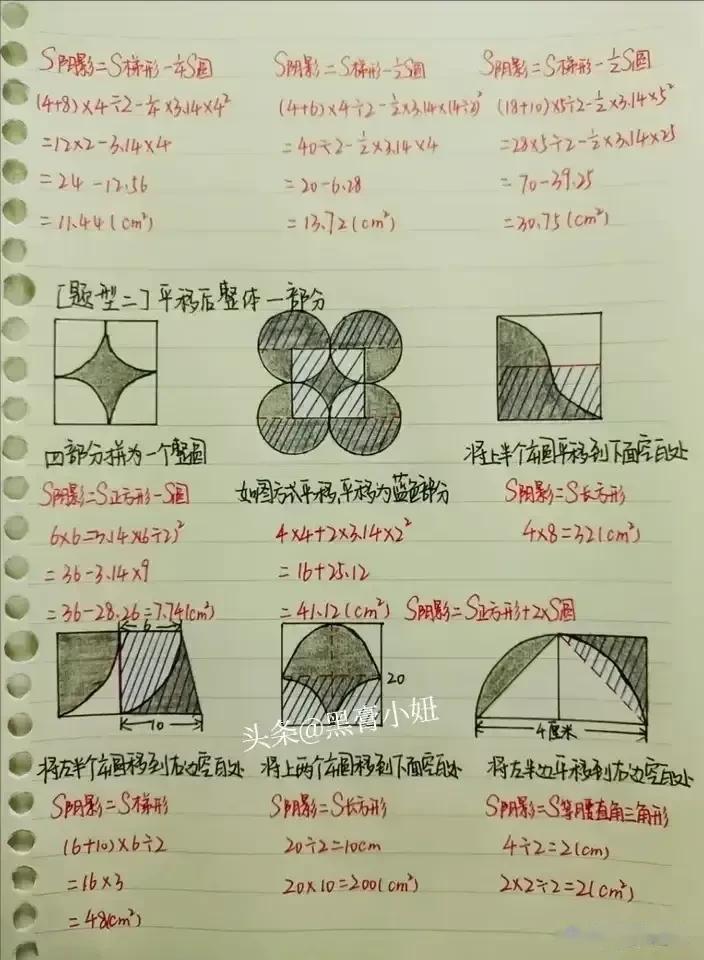 S阴影=S梯形-¼S圆
(4+8)×4÷2-¼×3.14×4²
=12×2-3.14×4
=24-12.56
=11.44(cm²)
S阴影=S梯形-½S圆
(4+6)×4÷2-½×3.14×(4÷2)²
=40÷2-½×3.14×4
=20-6.28
=13.72(cm²)
S阴影=S梯形-½S圆
(18+10)×5÷2-½×3.14×5²
=28×5÷2-½×3.14×25
=70-39.25
=30.75(cm²)
[题型二]平移后整体一部分
四部分拼为一个整圆
S阴影=S正方形-S圆
6×6-3.14×(6÷2)²
=36-3.14×9
=36-28.26=7.74(cm²)
如图方式平移,平移为蓝色部分
4×4+2×3.14×2²
=16+25.12
=41.12(cm²) S阴影=S正方形+2×S圆
将上半个本圆平移到下面空白处
S阴影=S长方形
4×8=32(cm²)
6
10
将左半个本圆移到右边空白处
S阴影=S梯形
(6+10)×6÷2
=16×3
=48(cm²)
20
将上两个本圆移到下面空白处
S阴影=S长方形
20÷2=10cm
20×10=200(cm²)
4厘米
将左半边平移到右边空白处
S阴影=S等腰直角三角形
4÷2=2(cm)
2×2÷2=2(cm²)
头条@黑膏小妞